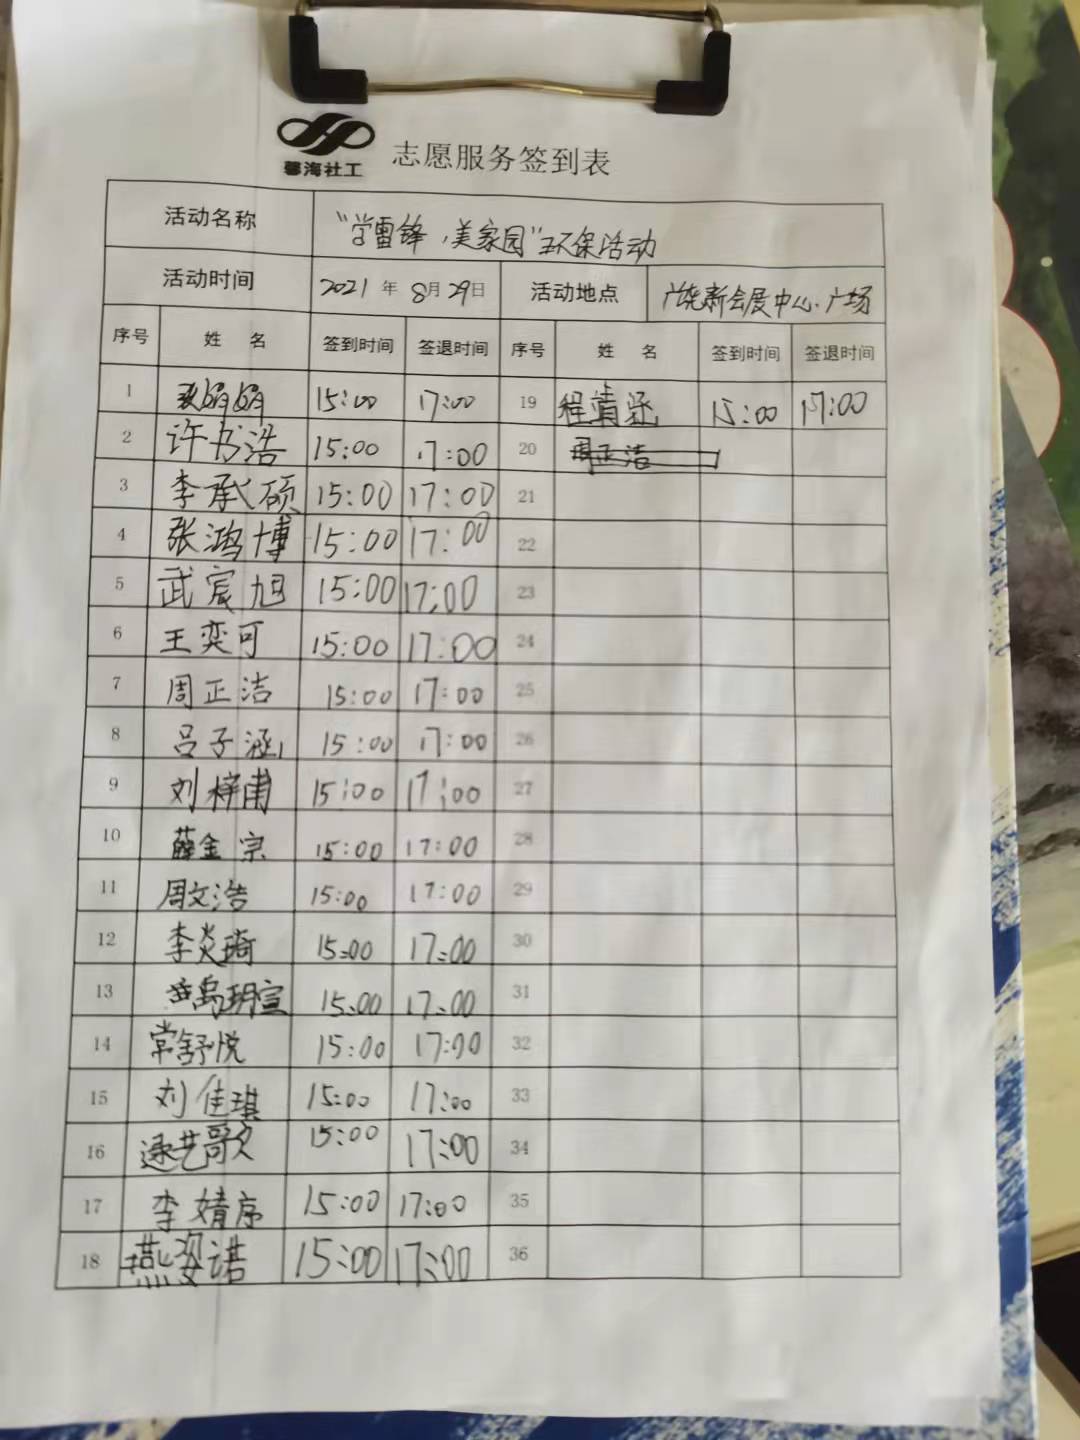 馨海社工
志愿服务签到表
活动名称 "学雷锋，美家园"环保活动
活动时间 2021年8月29日 活动地点 广饶新会展中心.广场
序号 姓 名 签到时间 签退时间 序号 姓 名 签到时间 签退时间
1 娟娟 15:00 17:00 19 程靖涵 15:00 17:00
2 许书浩 15:00 17:00 20 周正洁
3 李承硕 15:00 17:00 21
4 张鸿博 15:00 17:00 22
5 武宸旭 15:00 17:00 23
6 王奕可 15:00 17:00 24
7 周正洁 15:00 17:00 25
8 吕子涵 15:00 17:00 26
9 刘梓甫 15:00 17:00 27
10 薛金宗 15:00 17:00 28
11 周文浩 15:00 17:00 29
12 李炎琦 15:00 17:00 30
13 玥宣 15:00 17:00 31
14 常舒悦 15:00 17:00 32
15 刘佳琪 15:00 17:00 33
16 逯艺歌 15:00 17:00 34
17 李婧序 15:00 17:00 35
18 燕姿诺 15:00 17:00 36